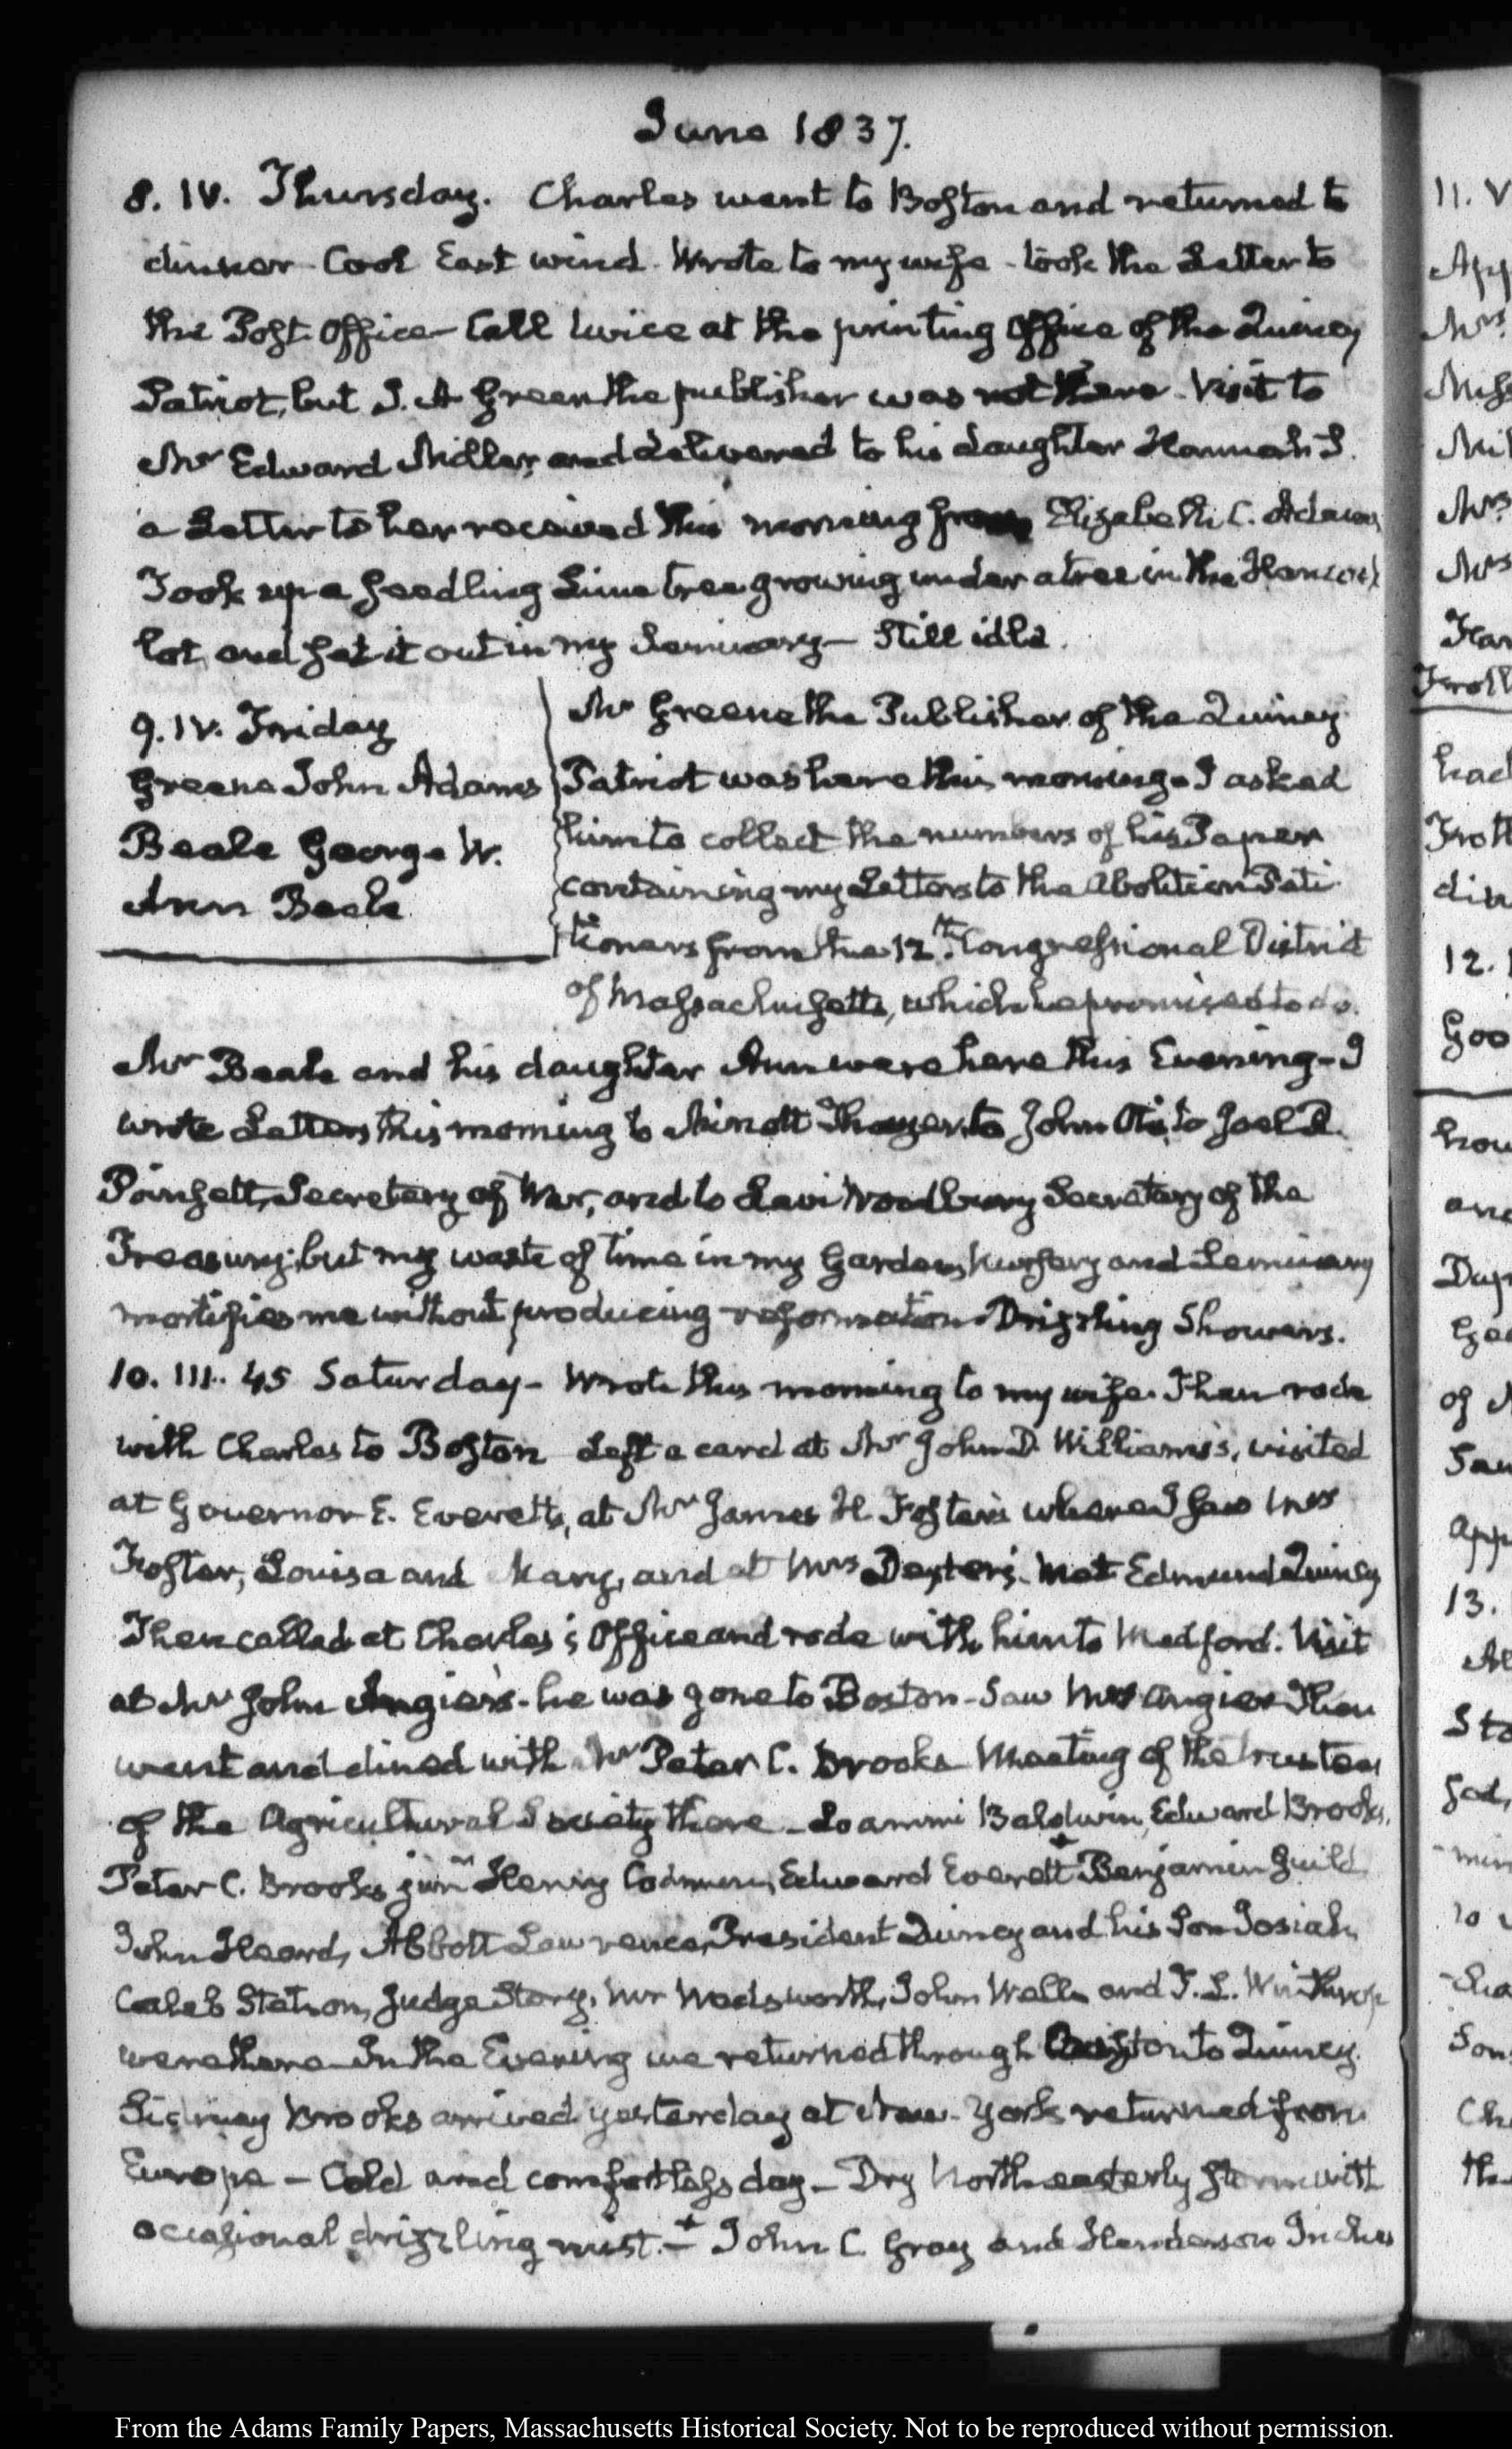 June 1837.
8. IV. Thursday. Charles went to Boston and returned to
dinner - Cool East wind. Wrote to my wife - took the Letter to
the Post Office - Call twice at the printing Office of the Quincy
Patriot, but J. A Green the publisher was not there. Visit to
Mr Edward Miller, and delivered to his daughter Hannah J.
a Letter to her received this morning from Elizabeth C. Adams
Took up a seedling Lime tree growing under a tree in the Hancock
lot, and set it out in my Seminary - Still idle.
9. IV. Friday
Greene John Adams
Beale George W.
Ann Beale
Mr Greene the Publisher of the Quincy
Patriot was here this morning - I asked
him to collect the numbers of his Paper
containing my Letters to the Abolition Peti
tioners from the 12th Congressional District
of Massachusetts, which he promised to do.
Mr Beale and his daughter Ann were here this Evening - I
wrote Letters this morning to Minott Thayer, to John Otis, to Joel R.
Poinsett, Secretary of War, and to Levi Woodbury Secretary of the
Treasury; but my waste of time in my Garden, Nursery and Seminary
mortifies me without producing reformation - Drizzling Showers.
10. III. 45 Saturday - Wrote this morning to my wife. Then rode
with Charles to Boston Left a card at Mr John D. Williams's, visited
at Governor E. Everett's, at Mr James H. Foster's where I saw Mrs
Foster, Louisa and Mary, and at Mrs Dexter's. Met Edmund Quincy
Then called at Charles's Office and rode with him to Medford. Visit
at Mr John Angier's - he was gone to Boston - Saw Mrs Angier Then
went and dined with Mr Peter C. Brooks Meeting of the trustees
of the Agricultural Society there - Loammi Baldwin, Edward Brooks,
Peter C. Brooks junr Henry Codman, Edward Everett + Benjamin Guild
John Heard, Abbott Lawrence, President Quincy and his Son Josiah,
Caleb Stetson, Judge Story, Mr Wadsworth, John Wells and T. L. Winthrop
were there - In the Evening we returned through to Quincy.
Sidney Brooks arrived yesterday at New-York returned from
Europe - Cold and comfortless day - Dry North easterly storm with
occasional drizzling mist. - + John C. Gray and Henderson Inches
11. V
App
Mrs
Miss
Mil
Mrs
Mrs
Har
Froth
had
Froth
din
12.
Goo
how
and
Dup
Geo
of
Sau
app
13.
Sto
God,
min
to
Son
Ch
the
From the Adams Family Papers, Massachusetts Historical Society. Not to be reproduced without permission.